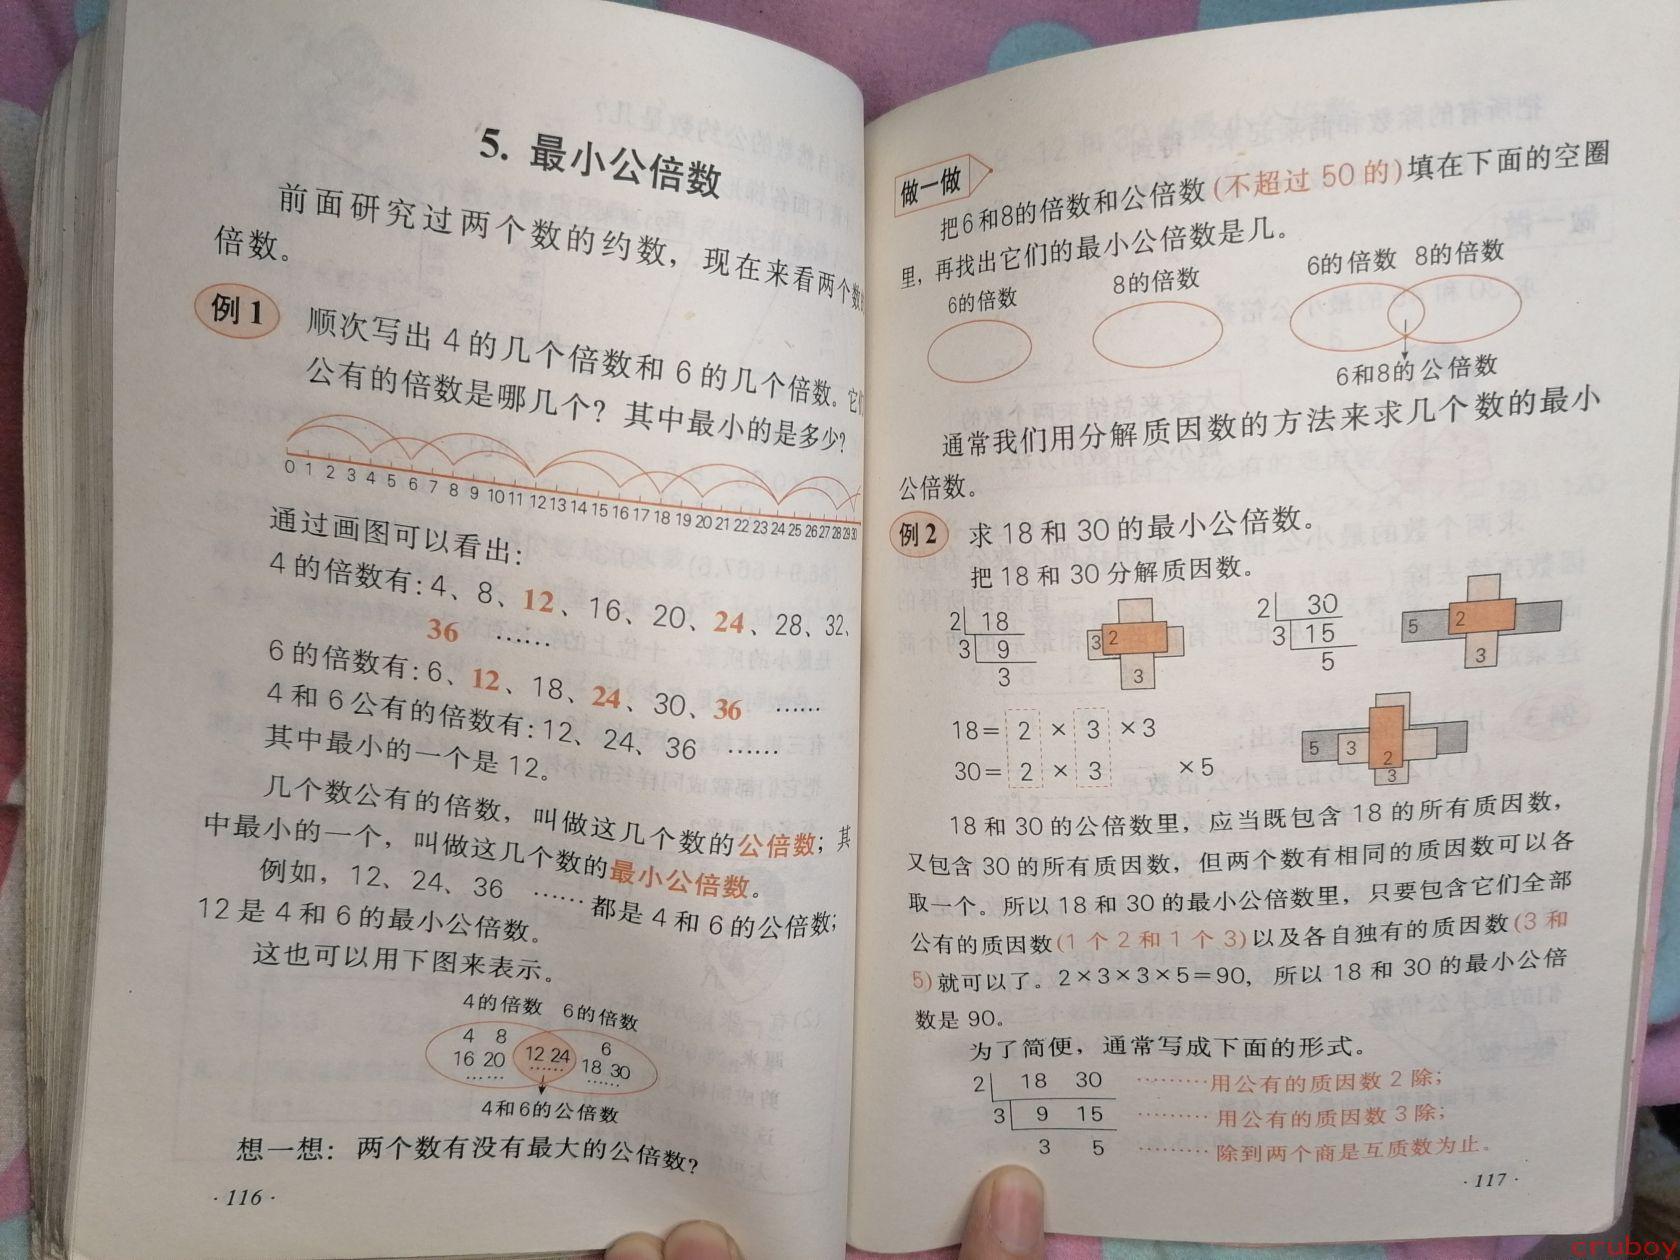 5. 最小公倍数
前面研究过两个数的约数，现在来看两个数
倍数。
例1
顺次写出 4 的几个倍数和 6 的几个倍数。它们
公有的倍数是哪几个？其中最小的是多少？
0 1 2 3 4 5 6 7 8 9 10 11 12 13 14 15 16 17 18 19 20 21 22 23 24 25 26 27 28 29 30
通过画图可以看出：
4 的倍数有：4、8、12、16、20、24、28、32、
36 ……
6 的倍数有：6、12、18、24、30、36 ……
4 和 6 公有的倍数有：12、24、36 ……
其中最小的一个是 12。
几个数公有的倍数，叫做这几个数的公倍数；其
中最小的一个，叫做这几个数的最小公倍数。
例如，12、24、36 ……都是 4 和 6 的公倍数；
12 是 4 和 6 的最小公倍数。
这也可以用下图来表示。
4的倍数 6的倍数
4 8
16 20
……
12 24
……
6
18 30
……
4和6的公倍数
想一想：两个数有没有最大的公倍数？
·116·
做一做
把6和8的倍数和公倍数(不超过 50 的)填在下面的空圈
里，再找出它们的最小公倍数是几。
6的倍数 8的倍数 6的倍数 8的倍数
6和8的公倍数
通常我们用分解质因数的方法来求几个数的最小
公倍数。
例2
求 18 和 30 的最小公倍数。
把 18 和 30 分解质因数。
2 18
3 9
3
3 2
3
2 30
3 15
5
5 2
3
18= 2 × 3 ×3
30= 2 × 3 ×5
5 3 2
3
18 和 30 的公倍数里，应当既包含 18 的所有质因数，
又包含 30 的所有质因数，但两个数有相同的质因数可以各
取一个。所以 18 和 30 的最小公倍数里，只要包含它们全部
公有的质因数(1 个 2 和 1 个 3)以及各自独有的质因数(3 和
5)就可以了。2×3×3×5=90，所以 18 和 30 的最小公倍
数是 90。
为了简便，通常写成下面的形式。
2 18 30 ………用公有的质因数 2 除；
3 9 15 ………用公有的质因数 3 除；
3 5 ………除到两个商是互质数为止。
·117·
cruboy